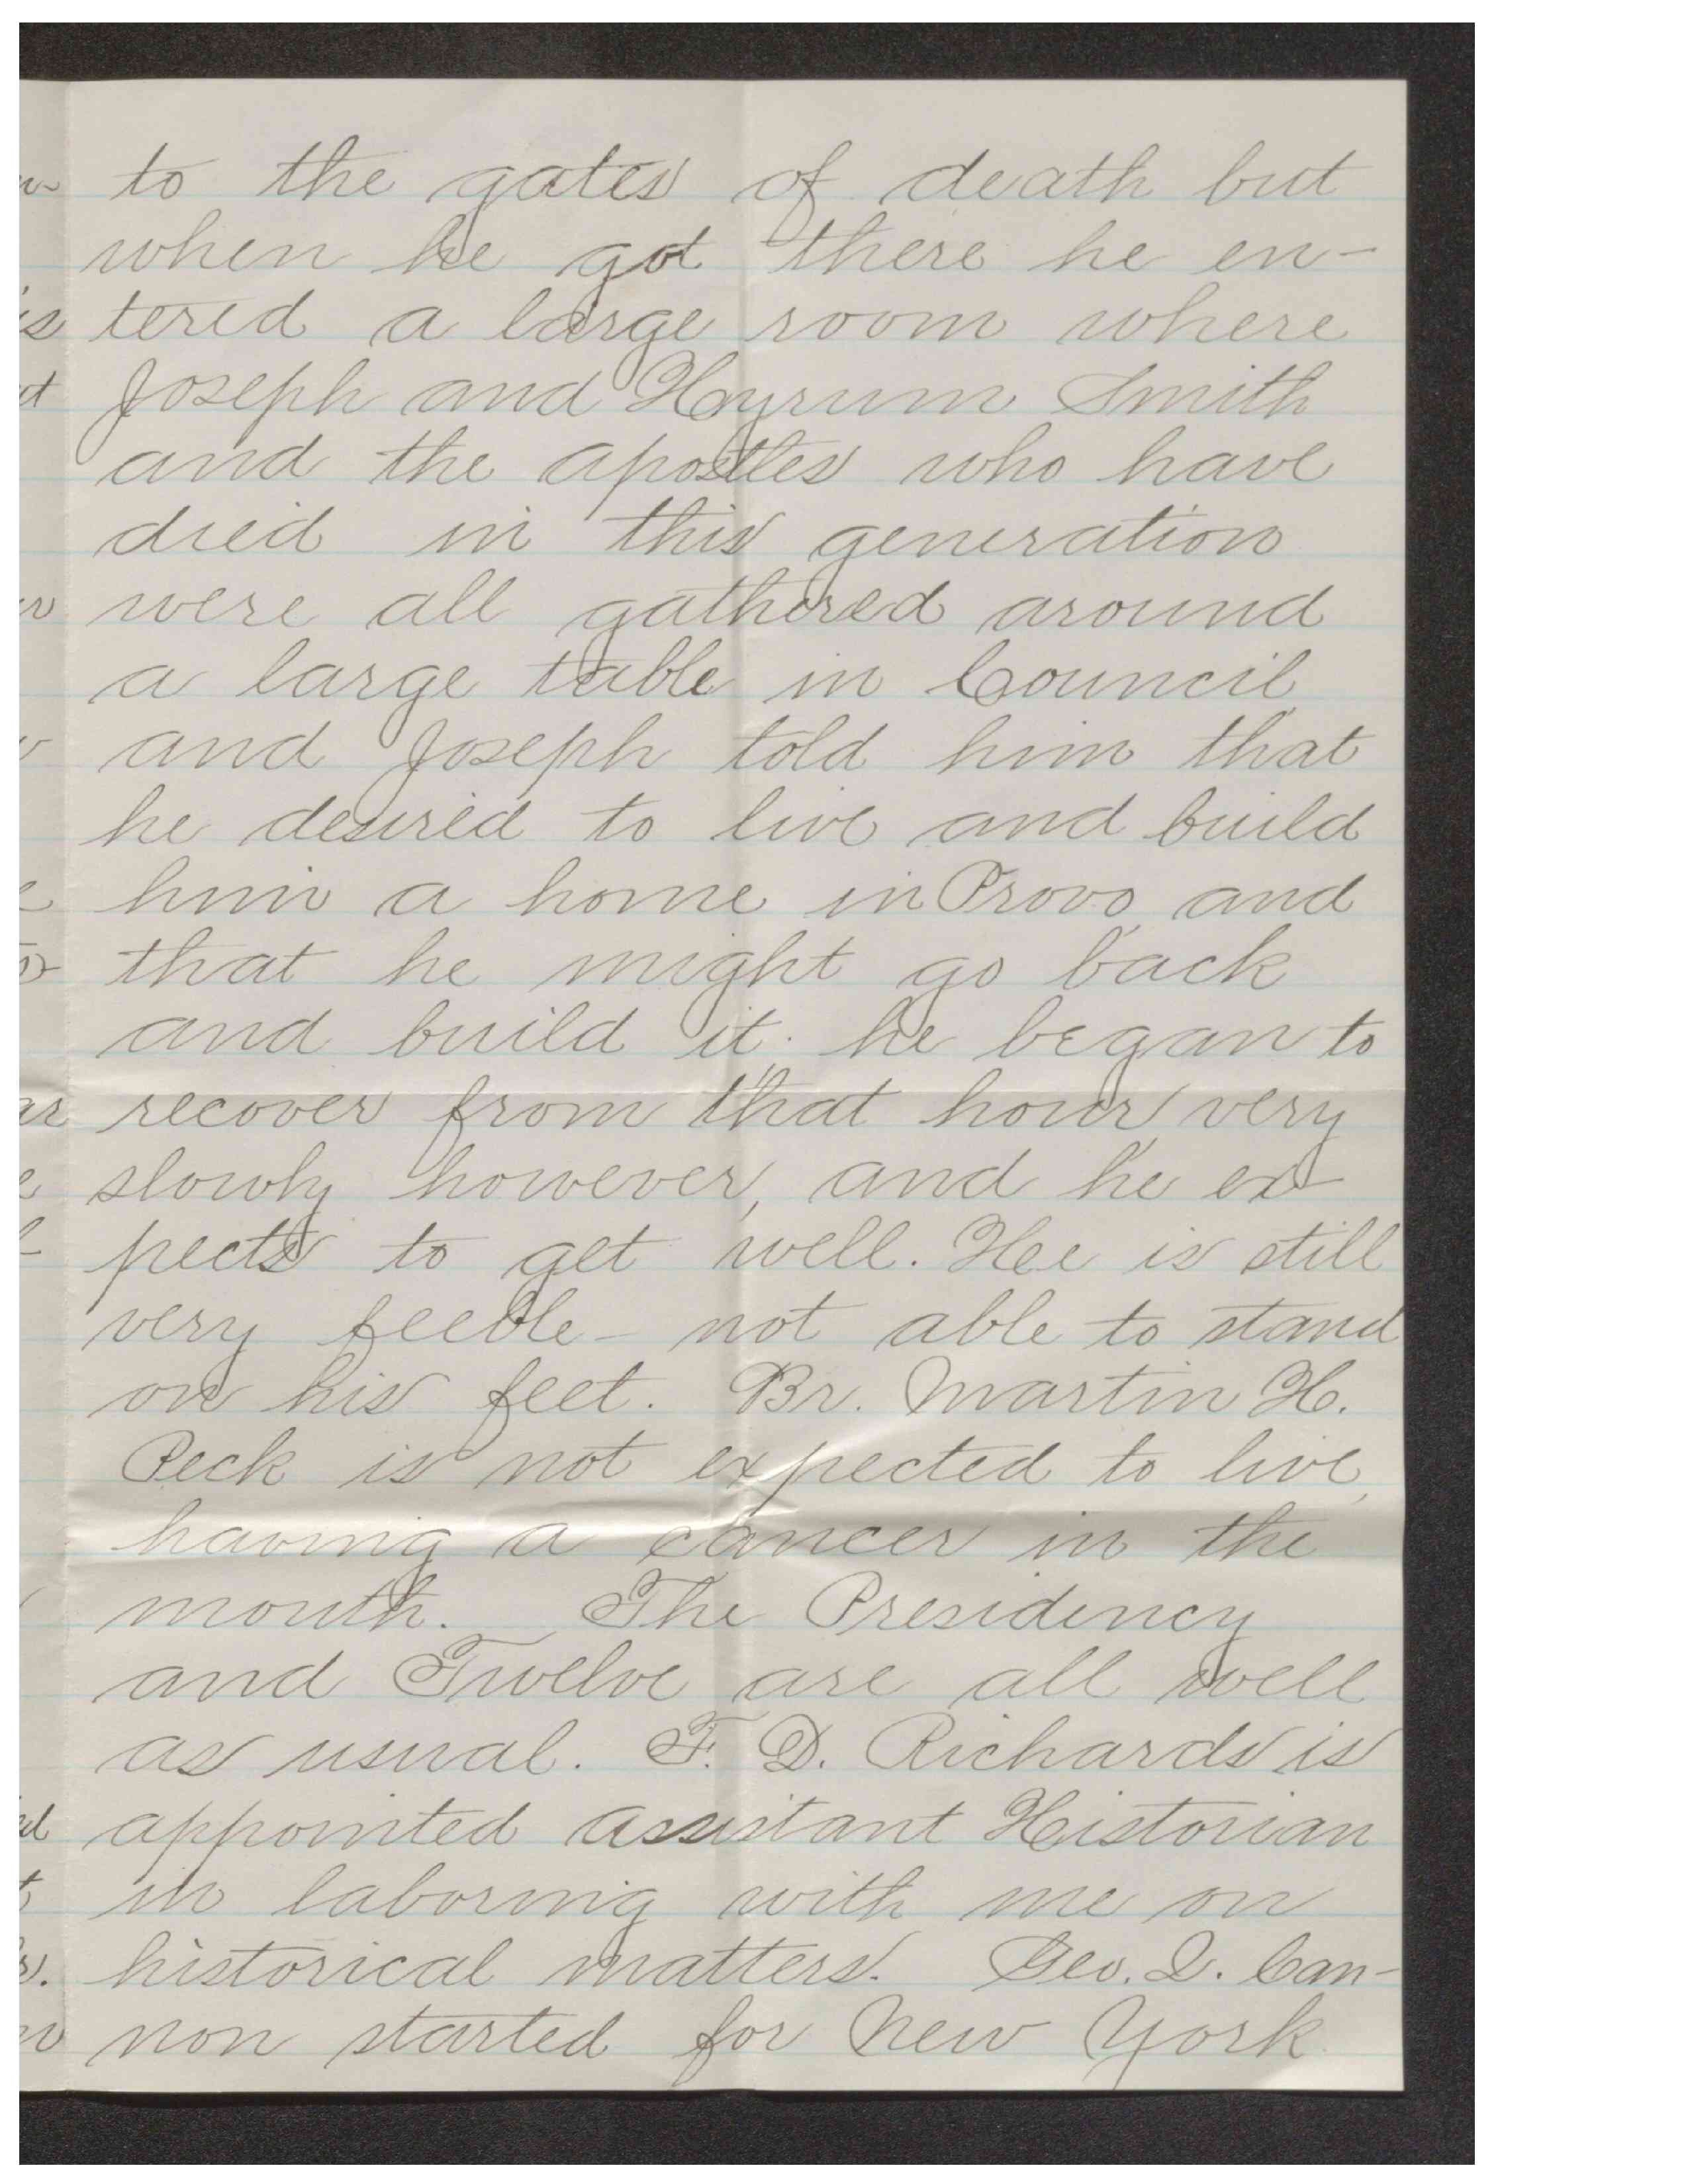 to the gates of death but
when he got there he en-
tered a large room where
Joseph and Hyrum Smith
and the apostles who have
died in this generation
were all gathered around
a large table in Council,
and Joseph told him that
he desired to live and build
him a home in Provo, and
that he might go back
and build it. he began to
recover from that hour, very
slowly however, and he ex-
pects to get well. Hee is still
very feeble - not able to stand
on his feet. Br. Martin H.
Peck is not expected to live,
having a cancer in the
mouth. The Presidency
and Twelve are all well
as usual. F. D. Richards is
appointed assistant Historian
in laboring with me on
historical matters. Geo. Q. Can-
non started for New York